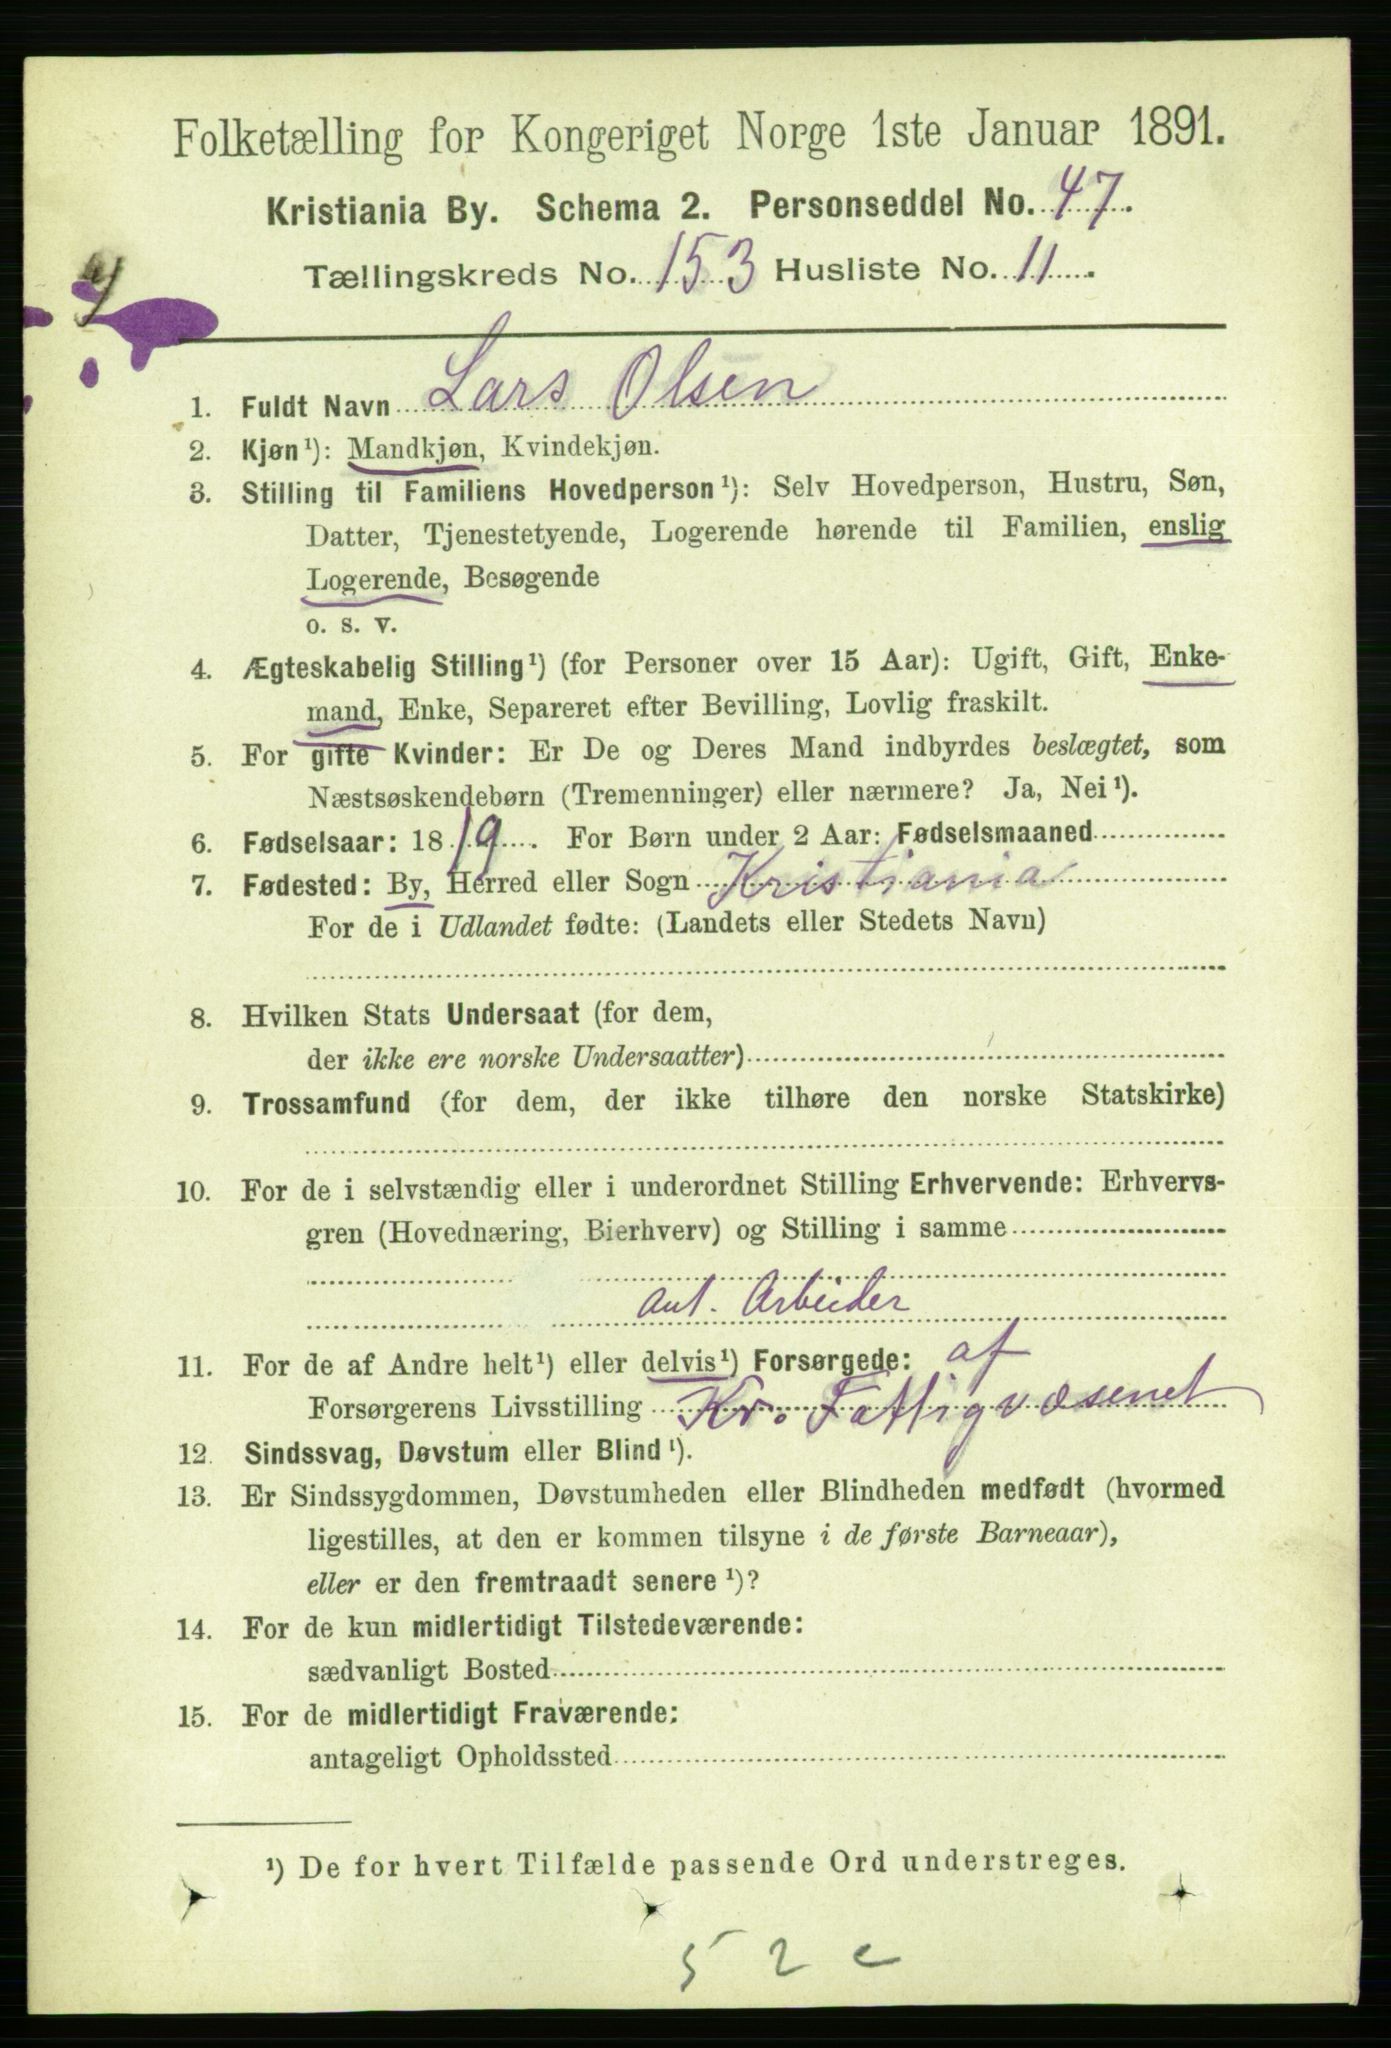 Folketælling for Kongeriget Norge 1ste Januar 1891.
Kristiania By. Schema 2. Personseddel No. 47.
Tællingskreds No. 153 Husliste No. 11.
1. Fuldt Navn Lars Olsen
2. Kjøn¹): Mandkjøn, Kvindekjøn.
3. Stilling til Familiens Hovedperson¹): Selv Hovedperson, Hustru, Søn,
Datter, Tjenestetyende, Logerende hørende til Familien, enslig
Logerende, Besøgende
o. s. v.
4. Ægteskabelig Stilling¹) (for Personer over 15 Aar): Ugift, Gift, Enke-
mand, Enke, Separeret efter Bevilling, Lovlig fraskilt.
5. For gifte Kvinder: Er De og Deres Mand indbyrdes beslægtet, som
Næstsøskendebørn (Tremenninger) eller nærmere? Ja, Nei¹).
6. Fødselsaar: 1819. For Børn under 2 Aar: Fødselsmaaned
7. Fødested: By, Herred eller Sogn Kristiania
For de i Udlandet fødte: (Landets eller Stedets Navn)
8. Hvilken Stats Undersaat (for dem,
der ikke ere norske Undersaatter)
9. Trossamfund (for dem, der ikke tilhøre den norske Statskirke)
10. For de i selvstændig eller i underordnet Stilling Erhvervende: Erhvervs-
gren (Hovednæring, Bierhverv) og Stilling i samme
Arbeider
11. For de af Andre helt¹) eller delvis¹) Forsørgede: af
Forsørgerens Livsstilling Kr. Fattigvæsenet
12. Sindssvag, Døvstum eller Blind¹).
13. Er Sindssygdommen, Døvstumheden eller Blindheden medfødt (hvormed
ligestilles, at den er kommen tilsyne i de første Barneaar),
eller er den fremtraadt senere¹)?
14. For de kun midlertidigt Tilstedeværende:
sædvanligt Bosted
15. For de midlertidigt Fraværende:
antageligt Opholdssted
¹) De for hvert Tilfælde passende Ord understreges.
52 c